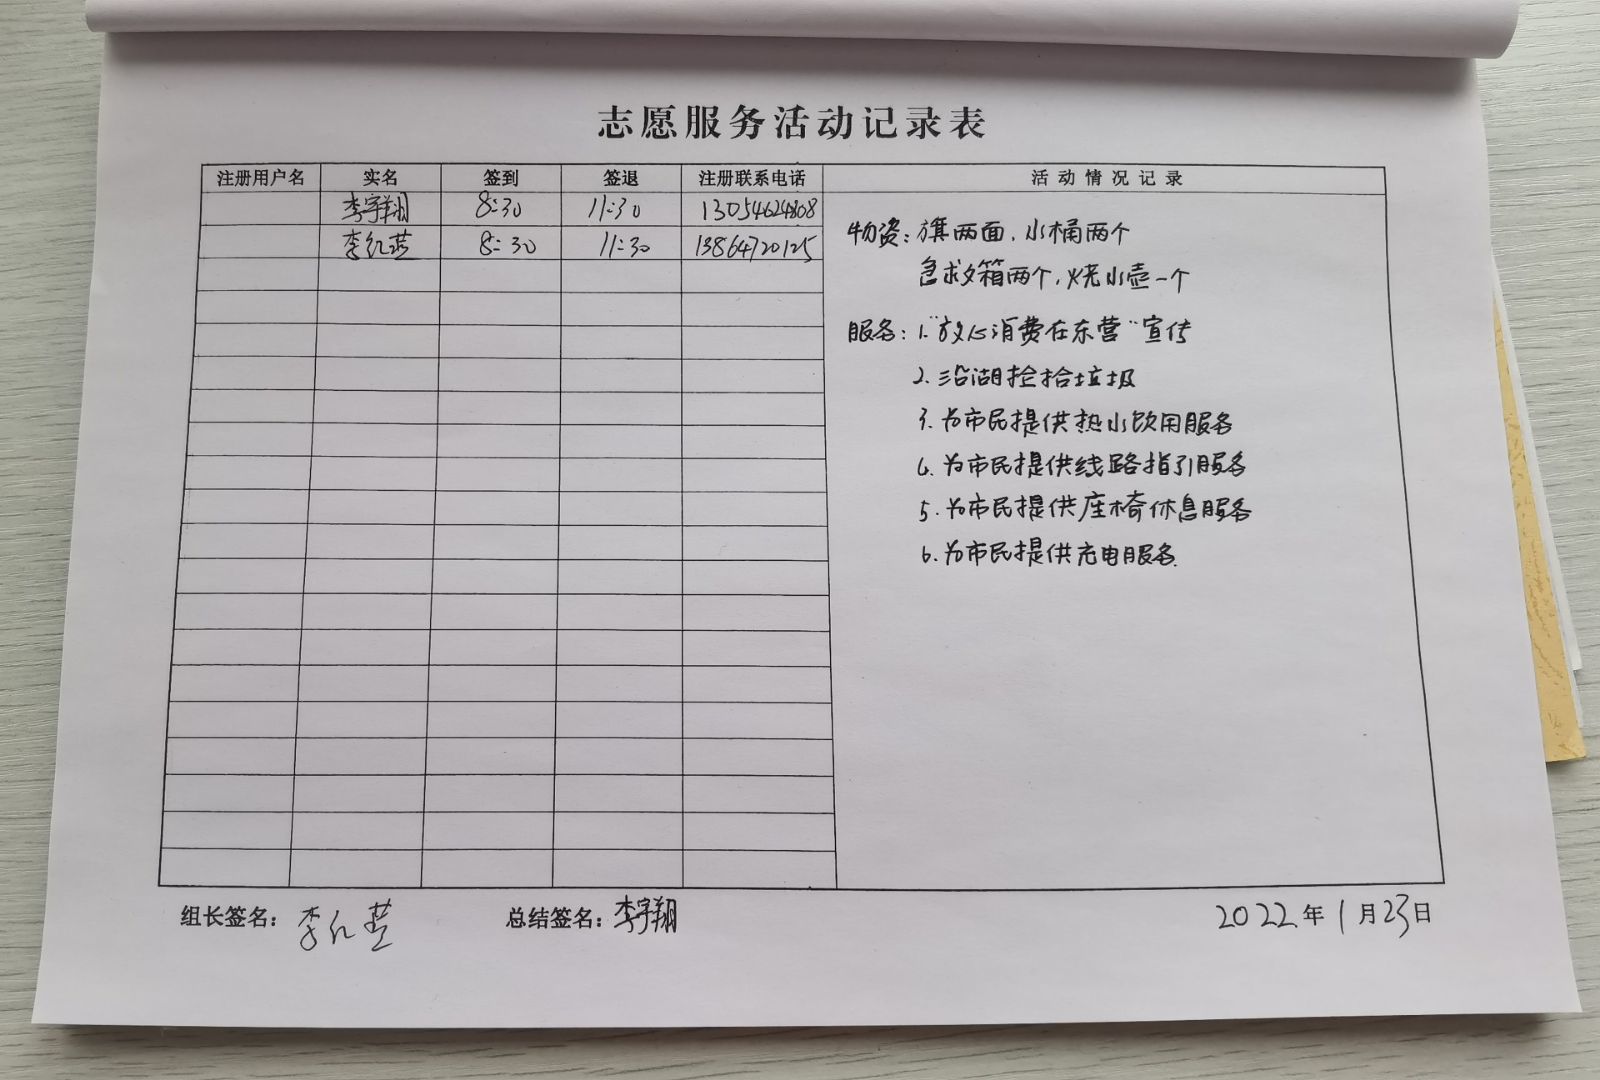 志愿服务活动记录表
注册用户名 实名 签到 签退 注册联系电话 活动情况记录
李宇翔 8:30 11:30 13054624808
李红燕 8:30 11:30 13864720125
物资：旗两面，水桶两个
急救箱两个，烧水壶一个
服务：1."放心消费在东营"宣传
2.沿湖捡拾垃圾
3.为市民提供热水饮用服务
4.为市民提供线路指引服务
5.为市民提供座椅休息服务
6.为市民提供充电服务.
组长签名：李红燕 总结签名：李宇翔 2022年1月23日